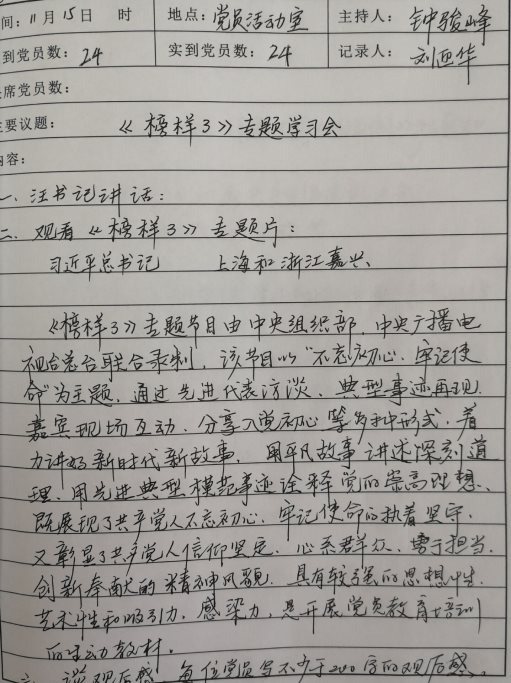 间: 11月15日 时 地点: 党员活动室 主持人: 钟骏峰
到党员数: 24 实到党员数: 24 记录人: 刘亚华
席党员数:
要议题: 《榜样3》专题学习会
内容:
一、汪书记讲话:
二、观看《榜样3》专题片:
习近平总书记 上海和浙江嘉兴、
《榜样3》专题节目由中央组织部、中央广播电
视总台联合录制, 该节目以“不忘初心、牢记使
命”为主题, 通过先进代表访谈、典型事迹再现、
嘉宾现场互动、分享入党初心等多种形式, 着
力讲好新时代新故事, 用平凡故事讲述深刻道
理、用先进典型模范事迹诠释党的崇高理想、
既展现了共产党人不忘初心、牢记使命的执着坚守,
又彰显了共产党人信仰坚定、心系群众、勇于担当、
创新奉献的精神风貌、具有较强的思想性、
艺术性和吸引力、感染力, 是开展党员教育培训
的生动教材。
谈观后感, 每位党员写不少于200字的观后感、